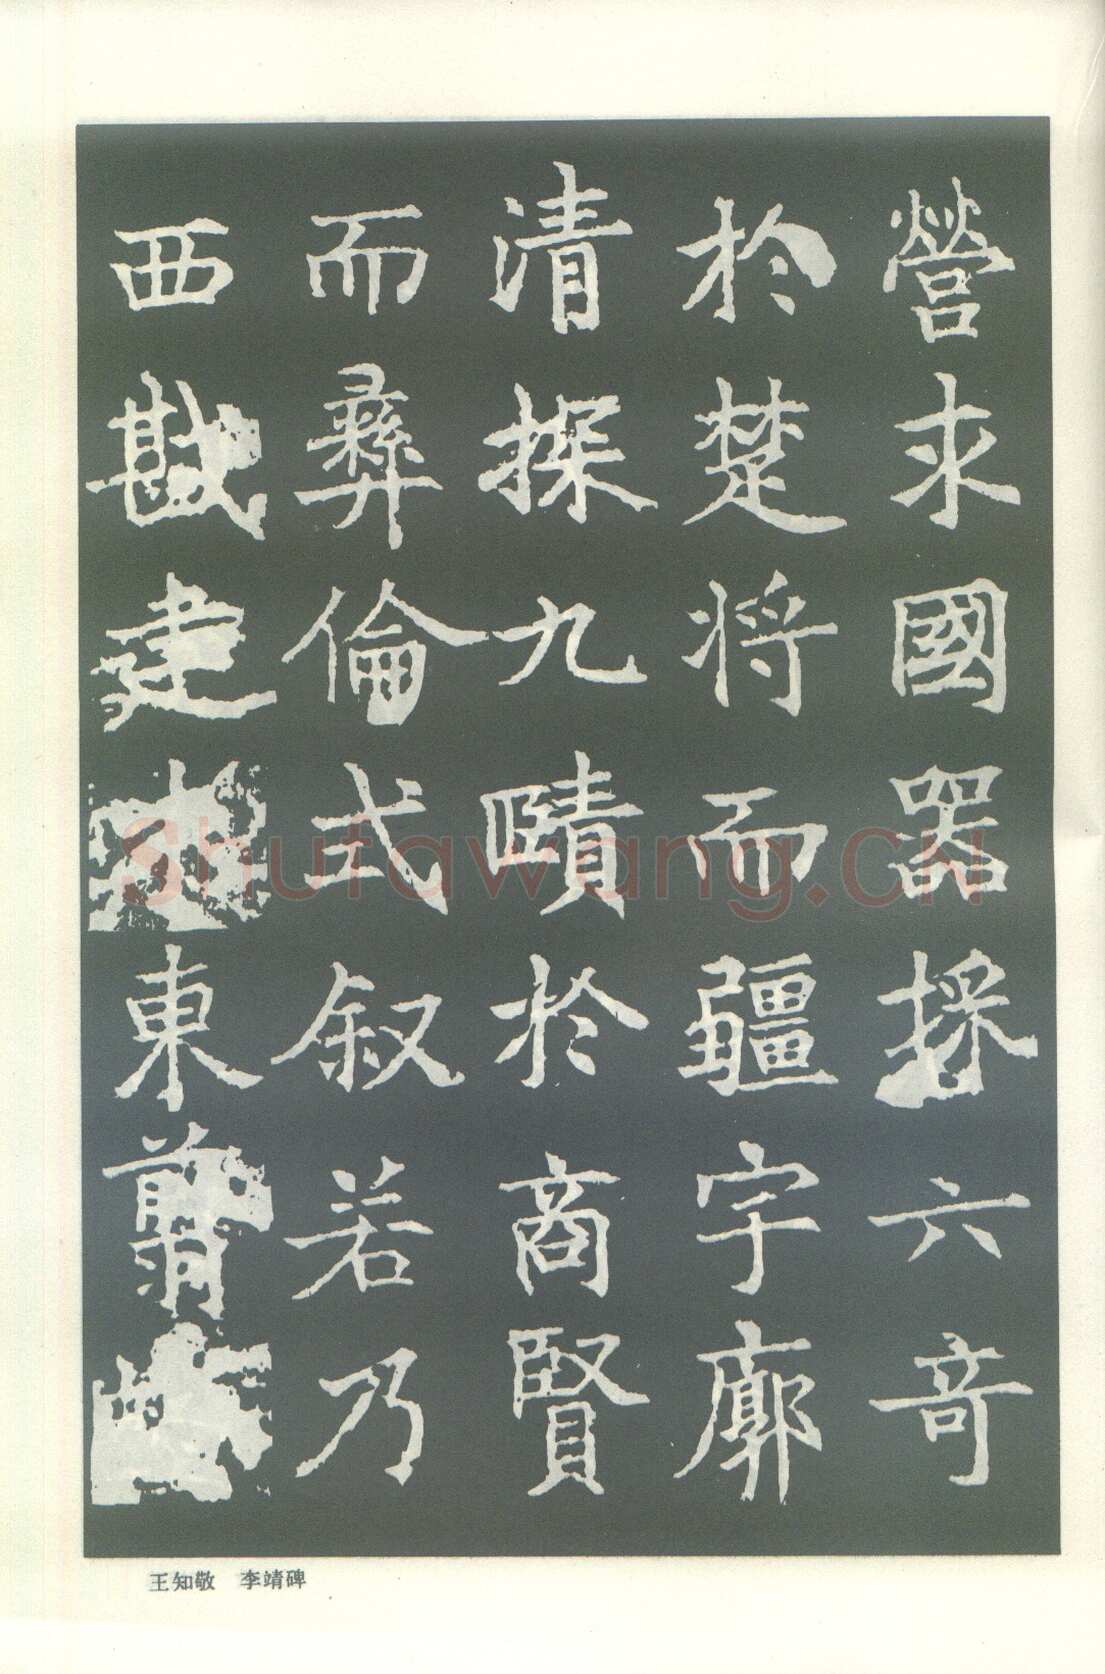 營求國器採六奇
於楚將而疆宇廓
清探九賾於商賢
而彝倫式叙若乃
西戡建東翦
王知敬 李靖碑
Shufawang.CN